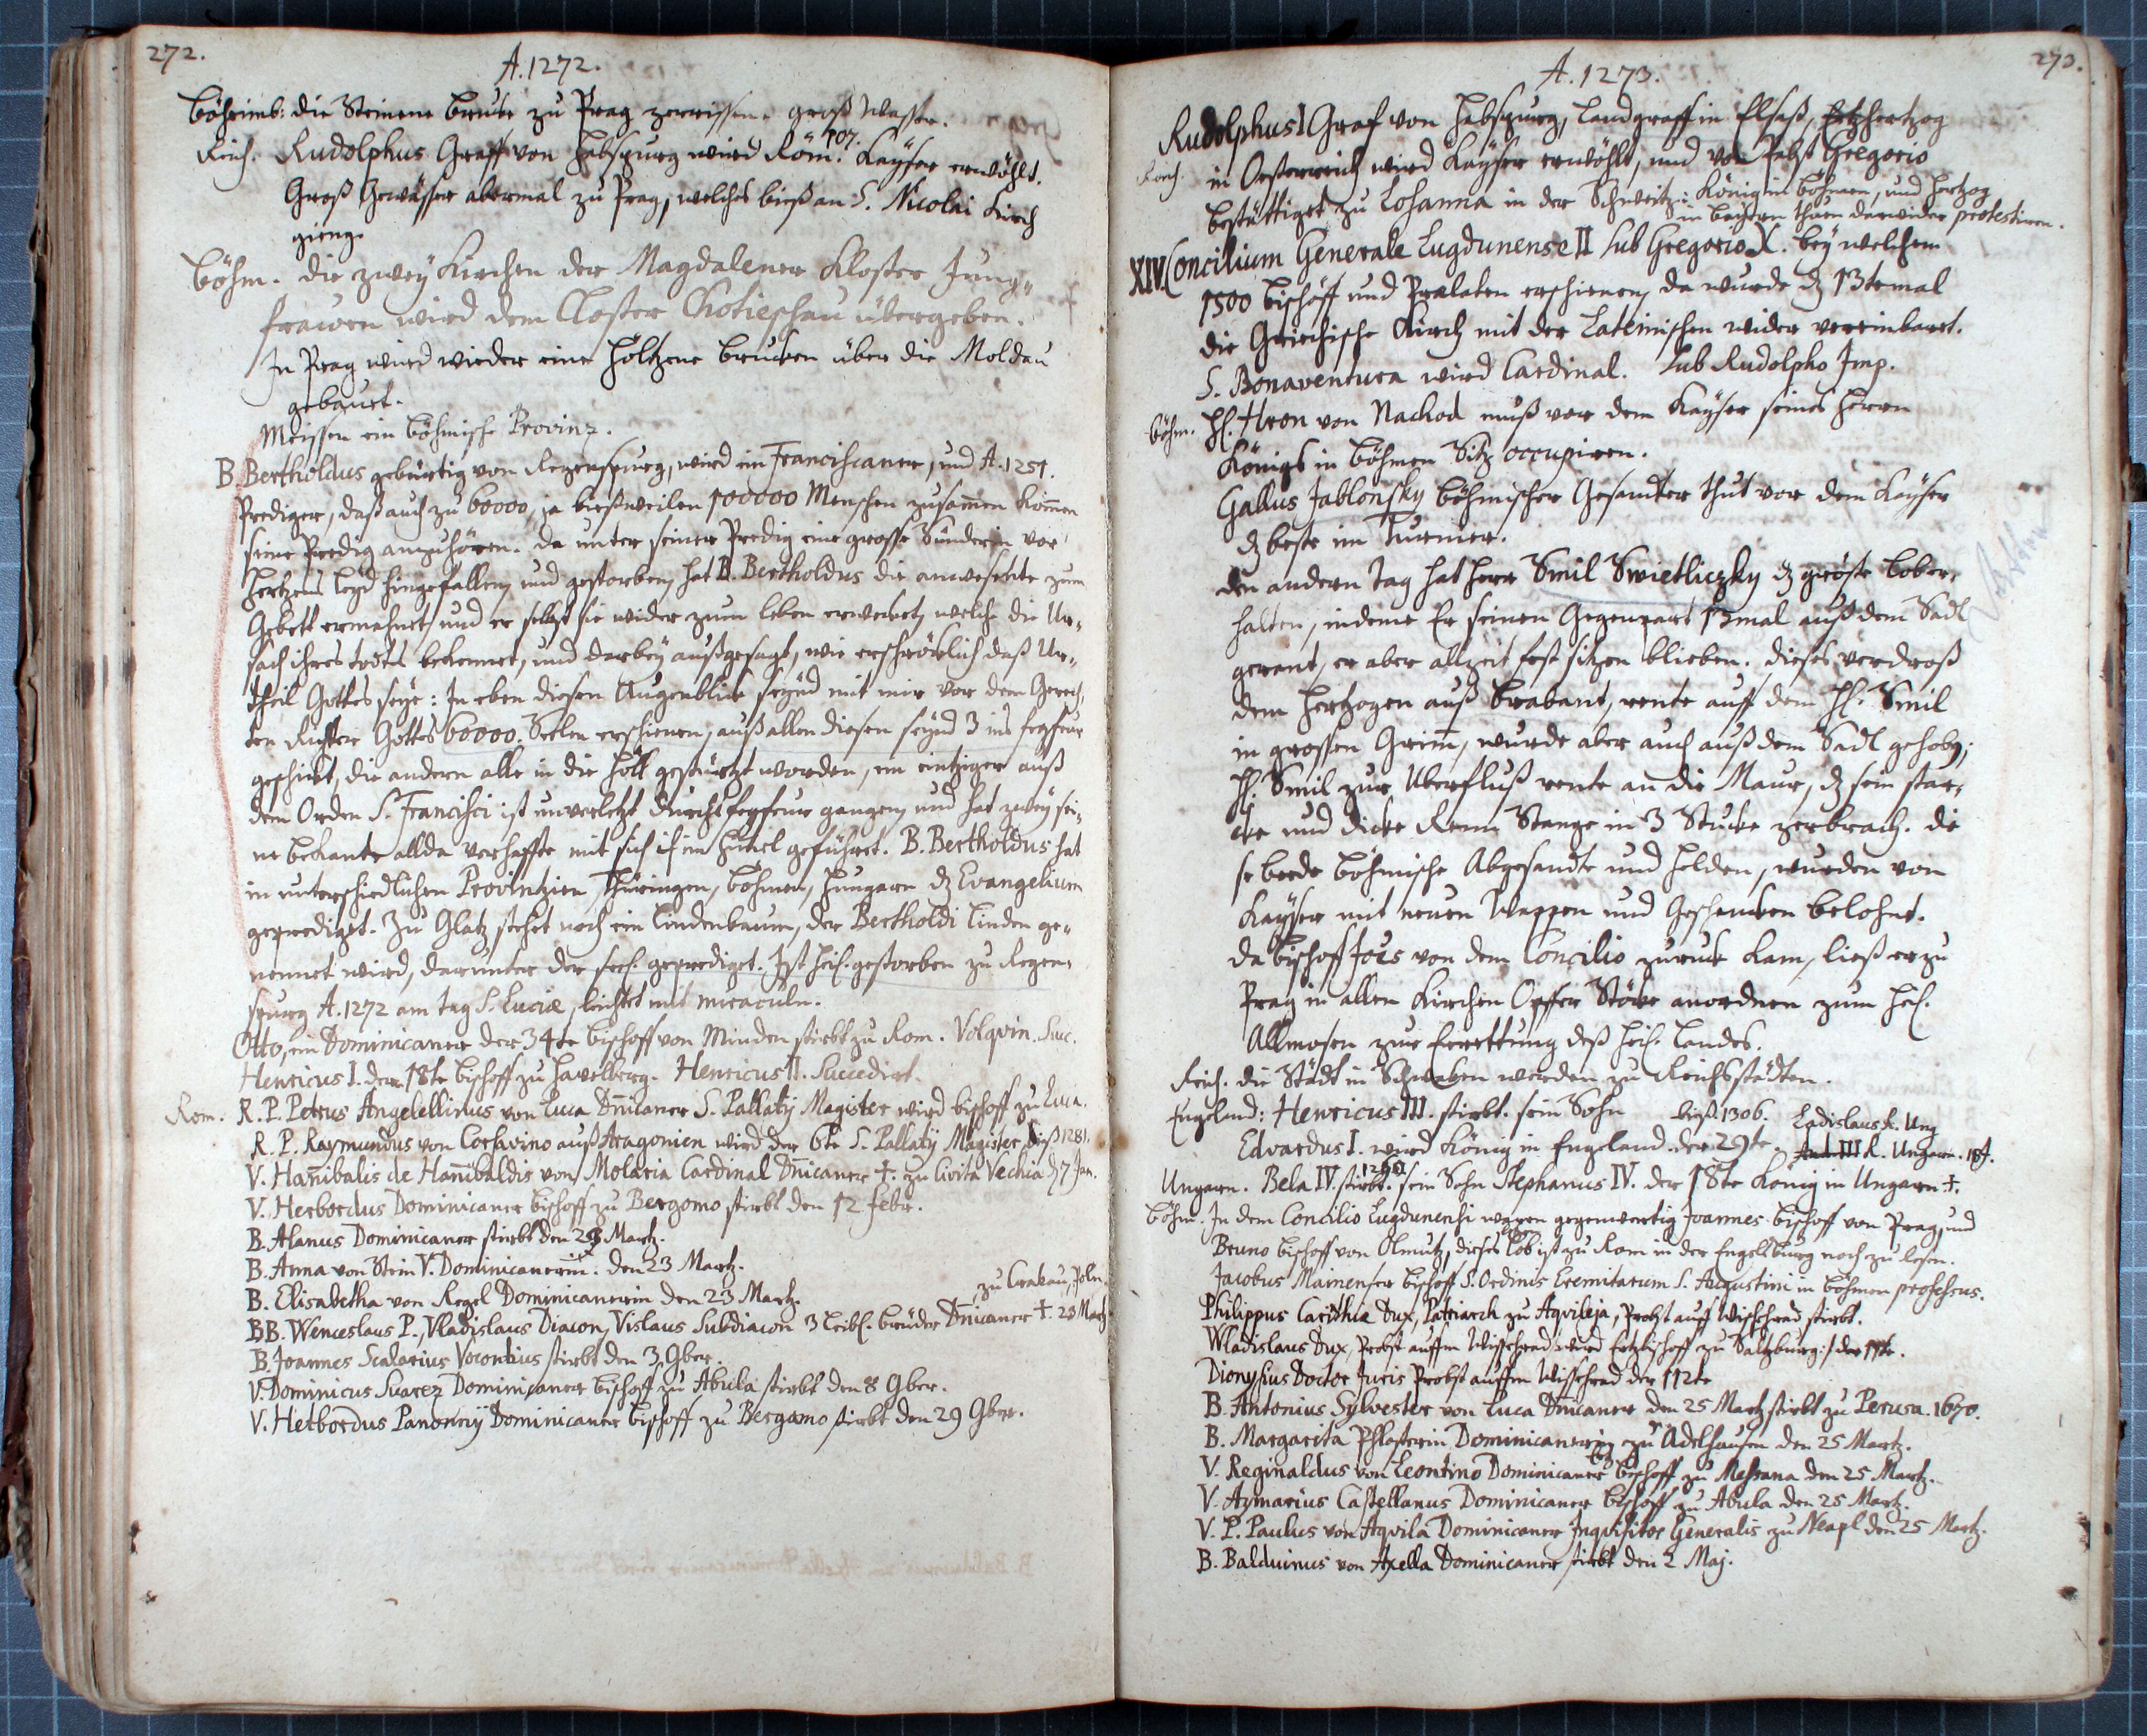 272.
A. 1272.
Böheimb: die Steinene Brucke zu Prag zerrissen. groß Wasser.
Reich. Rudolphus Graff von Habspurg wird Röm: 107. Kayser erwöhlt.
Groß Gewässer abermal zu Prag, welches bieß an S. Nicolai Kirch
gieng.
Böhm. die zwey Kirchen der Magdalener Kloster Jung=
frawen wird dem Closter Chotieschau übergeben.
In Prag wird wieder eine höltzene brucken über die Moldau
gebauet.
Meissen ein böhmische Provinz.
B. Bertholdus gebürtig von Regenspurg, wird ein Franciscaner, und A. 1251.
Prediger, daß auch zu 60000, ja bießweilen 100000 Menschen zusamen komen
seine Predig anzuhören. da unter seiner Predig eine grosse Sünderin vor
hertzens leyd hingefallen, und gestorben, hat B. Bertholdus die anwesente zum
Gebett ermahnet, und er selbst sie wider zum leben erwecket, welche die Ur=
sach ihres todts bekennet, und darbey außgesagt, wie erschröcklich daß Ur=
theil Gottes seye: In eben diesen Augenblick seynd mit mir vor dem Gerech
ten Richter Gottes 60000. Seelen erschienen, auß allen diesen seynd 3 ins fegfeur
geschickt, die andern alle in die höll gestürtzt worden, ein eintziger auß
dem Orden S. Francisci ist unverletzt durchs fegfeur gangen, und hat zwey sei=
ne bekante allda verhaffte mit sich in himel geführet. B. Bertholdus hat
in unterschiedlichen Provintzien, Thüringen, böhmen, Hungarn dz Evangelium
geprediget. Zu Glatz stehet noch ein lindenbaum, der Bertholdi linden ge=
nennet wird, darunter der seel. geprediget. Ist heil. gestorben zu Regen=
spurg A. 1272 am tag S. Luciæ, leichtet mit miraculn.
Otto, ein Dominicaner der 34te bischoff von Minden stirbt zu Rom. Volqvin. Suc.
Henricus I. der 18te bischoff zu Havelberg. Henricus II. Succedirt.
Rom. R. P. Petrus Angelellinus von Luca Dnicaner S. Pallatij Magister wird bischoff zu Luca.
R. P. Raymundus von Corsavino auß Aragonien wird der 6te S. Pallatij Magister, bieß 1281.
V. Hanibalis de Hanibaldis von Molaria Cardinal Dnicaner †. zu Civita Vechia d. 7 Jan.
V. Herbordus Dominicaner bischoff zu Bergomo stirbt den 12 Febr.
B. Alanus Dominicaner stirbt den 23 Martz.
B. Anna von Stein V. Dominicanerin. den 23 Martz.
B. Elisabetha von Regel Dominicanerin den 23 Martz.
zu Crakau, Poln.
BB. Wenceslaus P., Vladislaus Diacon, Vislaus Subdiacon 3 leibl. brüder Dnicaner † 23 Martz
B. Joannes Scalarius Vocontius stirbt den 3. 9ber.
V. Dominicus Suarez Dominicaner bischoff zu Abula stirbt den 8 9ber.
V. Herbordus Panonnij Dominicaner bischoff zu Bergomo stirbt den 29 9ber.
273.
A. 1273.
Rudolphus I Graf von Habspurg, Landgraff in Elsaß, Ertzhertzog
Reich. in Oesterreich wird Kayser erwöhlt, und von Pabst Gregorio
bestättiget zu Losanna in der Schweitz: König in böhmen, und hertzog
in bayern thuen darwider protestiren.
XIV. Concilium Generale Lugdunense II sub Gregorio X. bey welchem
1500 bischöff und Prælaten erschienen, da wurde dz 13temal
die Griechische Kirch mit der Lateinischen wider vereinbaret.
S. Bonaventura wird Cardinal. Sub Rudolpho Imp.
Böhm. H. Hron von Nachod muß vor dem Kayser seines herrn
Königs in böhmen Sitz occupiren.
Gallus Jablonsky böhmischer Gesandter thut vor dem Kayser
dz beste im Turnier.
den andern tag hat herr Smil Swietliczky dz gröste lob er=
halten, indeme Er seinen Gegenpart 12mal auß dem Sadl
gerent, er aber allzeit fest sitzen blieben. dieses verdroß
dem hertzogen auß Brabant, rente auff dem H. Smil
in grossen Grim, wurde aber auch auß dem Sadl gehoben;
H. Smil zur Uberfluß rente an die Maur, dz sein star=
cke und dicke Renn Stange in 3 Stucke zerbrach. die
se beede böhmische Abgesandte und helden, wurden von
Kayser mit neuen Wappen und Geschencken belohnt.
da bischoff Joes von dem Concilio zuruck kam, ließ er zu
Prag in allen Kirchen Opffer Stöcke anordnen zum heil.
Allmosen zur Errettung deß heil. landes.
Reich. die Städt in Schwaben werden zu Reichsstädten.
Engeland: Henricus III. stirbt. sein Sohn bieß 1306. Ladislaus K. Ung
Edvardus I. wird König in Engeland der 29te. And. III K. Ungarn. 18 J.
Ungarn. Bela IV. stirbt. 1270 sein Sohn Stephanus IV. der 18te König in Ungarn †.
Böhm. In dem Concilio Lugdunensi waren gegenwertig Joannes bischoff von Prag, und
Bruno bischoff von Olmutz, dieses lob ist zu Rom in der Engelsburg noch zu lesen.
Jacobus Mainenser bischoff S. Ordinis Eremitarum S. Augustini in böhmen professus.
Philippus Carinthiæ Dux, Patriarch zu Aqvileja, Probst auff Wischehrad stirbt.
Wladislaus Dux, Probst auffm Wisschehrad wird Ertzbischoff zu Saltzburg: der 11te.
Dionysius Doctor Juris Probst auffm Wisschehrad der 12te
B. Antonius Sylvester von Luca Dnicaner den 25 Martz stirbt zu Perusa. 1670.
B. Margarita Pflasterin Dominicanerin zu Adelhausen den 25 Martz.
V. Reginaldus von Leontino Dominicaner bischoff zu Messana den 25 Martz.
V. Aymarius Castellanus Dominicaner bischoff zu Abula den 25 Martz.
V. P. Paulus von Aqvila Dominicaner Inqvisitor Generalis zu Neapl den 25 Martz.
B. Balduinus von Axella Dominicaner stirbt den 2 Maj.